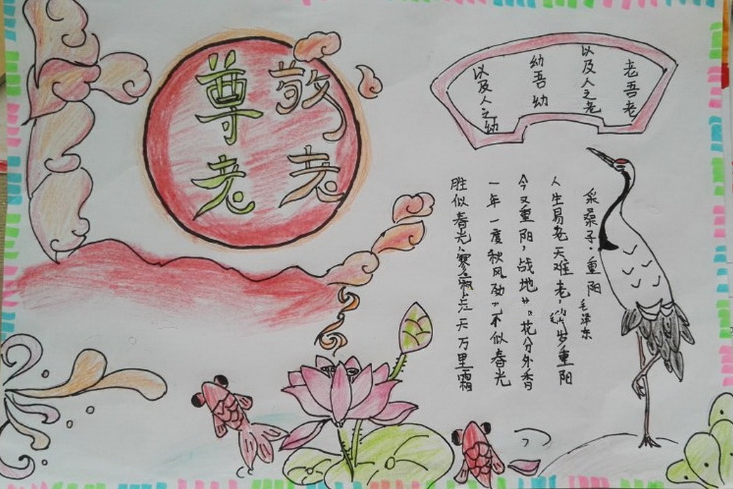 敬老
尊老
老吾老
以及人之老
幼吾幼
以及人之幼
采桑子·重阳
毛泽东
人生易老天难老,岁重阳
今又重阳,战地花分外香
一年一度秋风劲,不似春光
胜似春光,寥天万里霜